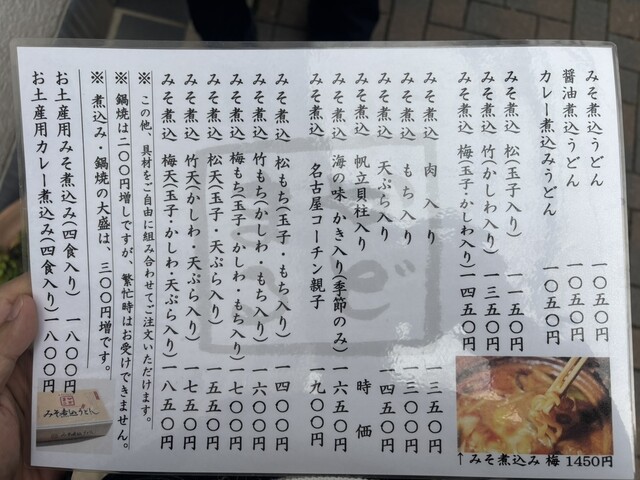 みそ煮込うどん 一〇五〇円
醤油煮込うどん 一〇五〇円
カレー煮込みうどん 一〇五〇円
みそ煮込 松(玉子入り) 一一五〇円
みそ煮込 竹(かしわ入り) 一三五〇円
みそ煮込 梅(玉子・かしわ入り) 一四五〇円
みそ煮込 肉入り 一三五〇円
みそ煮込 もち入り 一三〇〇円
みそ煮込 天ぷら入り 一四五〇円
みそ煮込 帆立貝柱入り 時価
みそ煮込 海の味 かき入り(季節のみ) 一六五〇円
みそ煮込 名古屋コーチン親子 一九〇〇円
みそ煮込 松もち(玉子・もち入り) 一四〇〇円
みそ煮込 竹もち(かしわ・もち入り) 一六〇〇円
みそ煮込 梅もち(玉子・かしわ・もち入り) 一七〇〇円
みそ煮込 松天(玉子・天ぷら入り) 一五五〇円
みそ煮込 竹天(かしわ・天ぷら入り) 一七五〇円
みそ煮込 梅天(玉子・かしわ・天ぷら入り) 一八五〇円
※ この他、具材をご自由に組み合わせてご注文いただけます。
※ 鍋焼は二〇〇円増しですが、繁忙時はお受けできません。
※ 煮込み・鍋焼の大盛は、三〇〇円増です。
お土産用みそ煮込み(四食入り) 一八〇〇円
お土産用カレー煮込み(四食入り) 一八〇〇円
↑みそ煮込み 梅 1450円
みそ煮込うどん